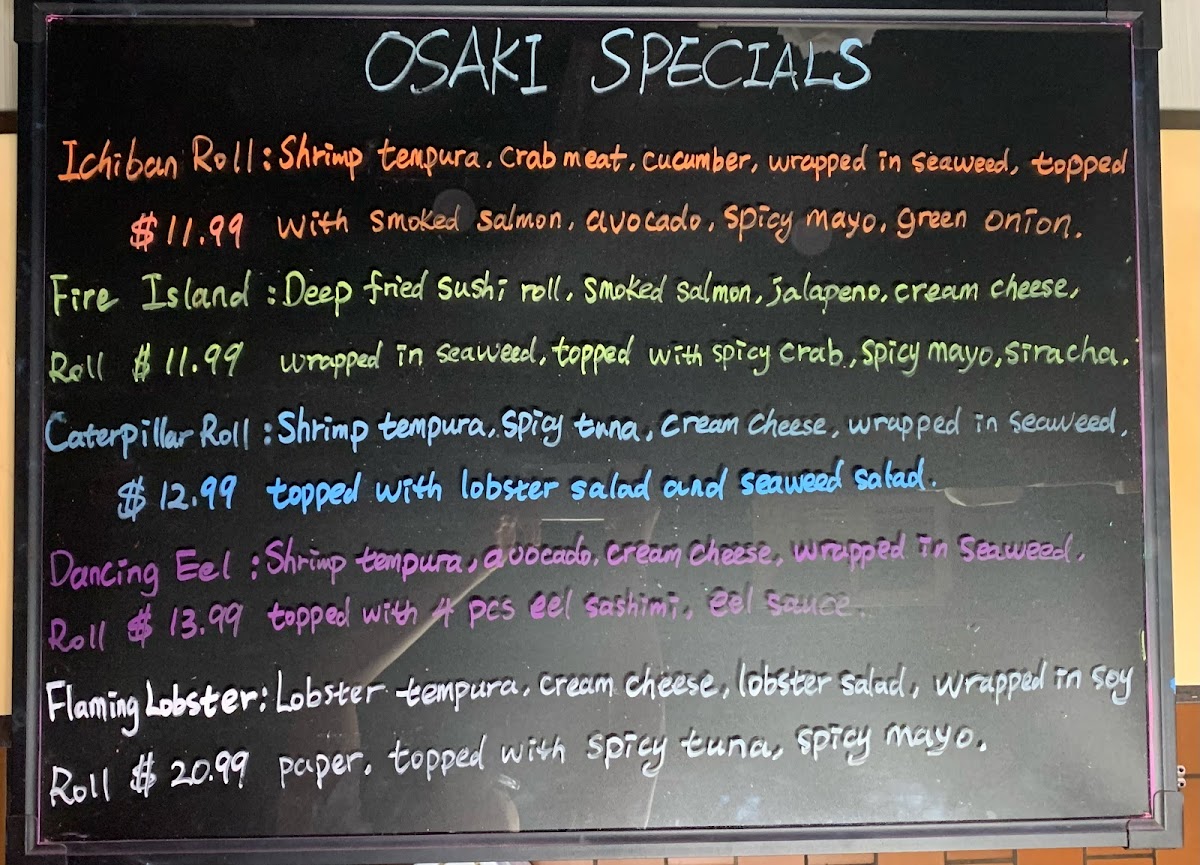 OSAKI SPECIALS
Ichiban Roll: Shrimp tempura, crab meat, cucumber, wrapped in seaweed, topped
$11.99 with smoked salmon, avocado, spicy mayo, green onion.
Fire Island: Deep fried sushi roll, smoked salmon, jalapeno, cream cheese,
Roll $11.99 wrapped in seaweed, topped with spicy crab, spicy mayo, siracha.
Caterpillar Roll: Shrimp tempura, spicy tuna, cream cheese, wrapped in seaweed,
$12.99 topped with lobster salad and seaweed salad.
Dancing Eel: Shrimp tempura, avocado, cream cheese, wrapped in seaweed,
Roll $13.99 topped with 4 pcs eel sashimi, eel sauce.
Flaming Lobster: Lobster tempura, cream cheese, lobster salad, wrapped in soy
Roll $20.99 paper, topped with spicy tuna, spicy mayo.